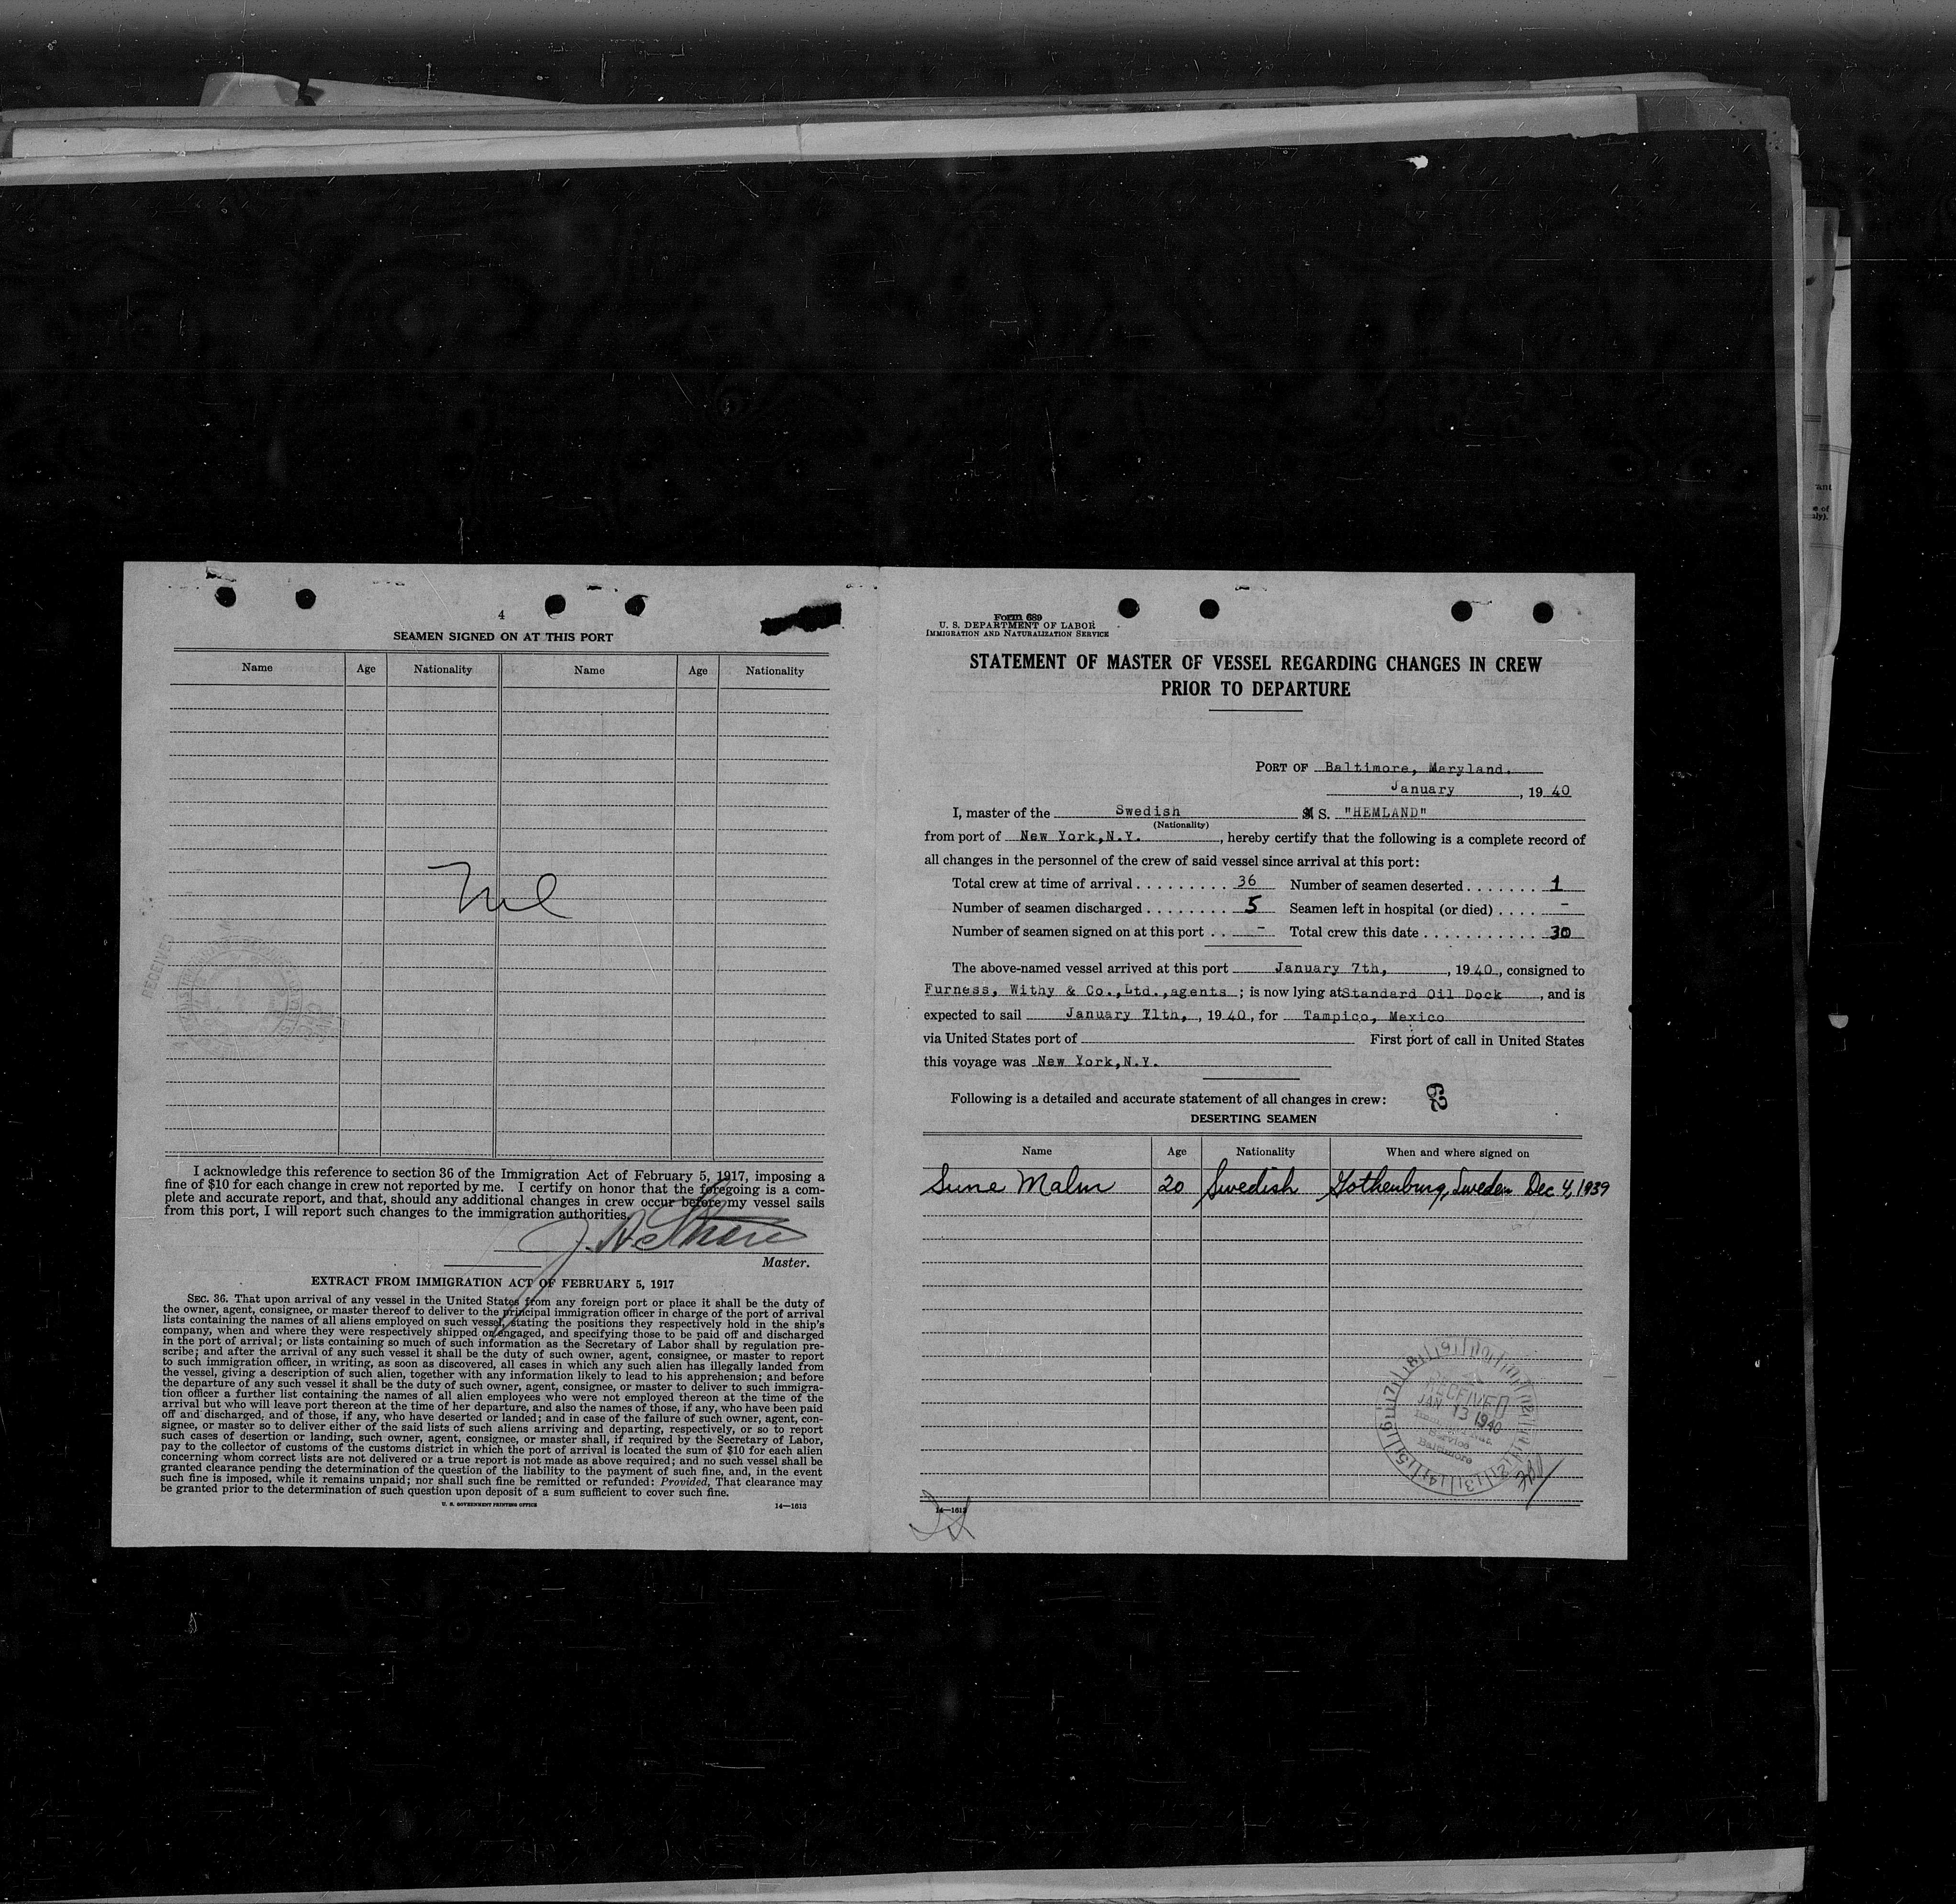 4
SEAMEN SIGNED ON AT THIS PORT
Name Age Nationality Name Age Nationality
Nil
RECEIVED
I acknowledge this reference to section 36 of the Immigration Act of February 5, 1917, imposing a
fine of $10 for each change in crew not reported by me. I certify on honor that the foregoing is a com-
plete and accurate report, and that, should any additional changes in crew occur before my vessel sails
from this port, I will report such changes to the immigration authorities.
Master.
EXTRACT FROM IMMIGRATION ACT OF FEBRUARY 5, 1917
SEC. 36. That upon arrival of any vessel in the United States from any foreign port or place it shall be the duty of
the owner, agent, consignee, or master thereof to deliver to the principal immigration officer in charge of the port of arrival
lists containing the names of all aliens employed on such vessel, stating the positions they respectively hold in the ship's
company, when and where they were respectively shipped or engaged, and specifying those to be paid off and discharged
in the port of arrival; or lists containing so much of such information as the Secretary of Labor shall by regulation pre-
scribe; and after the arrival of any such vessel it shall be the duty of such owner, agent, consignee, or master to report
to such immigration officer, in writing, as soon as discovered, all cases in which any such alien has illegally landed from
the vessel, giving a description of such alien, together with any information likely to lead to his apprehension; and before
the departure of any such vessel it shall be the duty of such owner, agent, consignee, or master to deliver to such immigra-
tion officer a further list containing the names of all alien employees who were not employed thereon at the time of the
arrival but who will leave port thereon at the time of her departure, and also the names of those, if any, who have been paid
off and discharged, and of those, if any, who have deserted or landed; and in case of the failure of such owner, agent, con-
signee, or master so to deliver either of the said lists of such aliens arriving and departing, respectively, or so to report
such cases of desertion or landing, such owner, agent, consignee, or master shall, if required by the Secretary of Labor,
pay to the collector of customs of the customs district in which the port of arrival is located the sum of $10 for each alien
concerning whom correct lists are not delivered or a true report is not made as above required; and no such vessel shall be
granted clearance pending the determination of the question of the liability to the payment of such fine, and, in the event
such fine is imposed, while it remains unpaid; nor shall such fine be remitted or refunded: Provided, That clearance may
be granted prior to the determination of such question upon deposit of a sum sufficient to cover such fine.
U. S. GOVERNMENT PRINTING OFFICE 14—1613
Form 689
U. S. DEPARTMENT OF LABOR
IMMIGRATION AND NATURALIZATION SERVICE
STATEMENT OF MASTER OF VESSEL REGARDING CHANGES IN CREW
PRIOR TO DEPARTURE
PORT OF Baltimore, Maryland.
January, 19 40
I, master of the Swedish M S. "HEMLAND"
(Nationality)
from port of New York,N.Y., hereby certify that the following is a complete record of
all changes in the personnel of the crew of said vessel since arrival at this port:
Total crew at time of arrival 36 Number of seamen deserted 1
Number of seamen discharged 5 Seamen left in hospital (or died) -
Number of seamen signed on at this port - Total crew this date 30
The above-named vessel arrived at this port January 7th, , 19 40, consigned to
Furness, Withy & Co.,Ltd.,agents ; is now lying at Standard Oil Dock, and is
expected to sail January 11th, , 19 40, for Tampico, Mexico
via United States port of First port of call in United States
this voyage was New York,N.Y.
Following is a detailed and accurate statement of all changes in crew: 62
DESERTING SEAMEN
Name Age Nationality When and where signed on
Sune Malm 20 Swedish Gothenburg, Sweden Dec 4, 1939
RECEIVED
JAN 13 1940
Service
Baltimore
14—1613
ant
e of
nly).